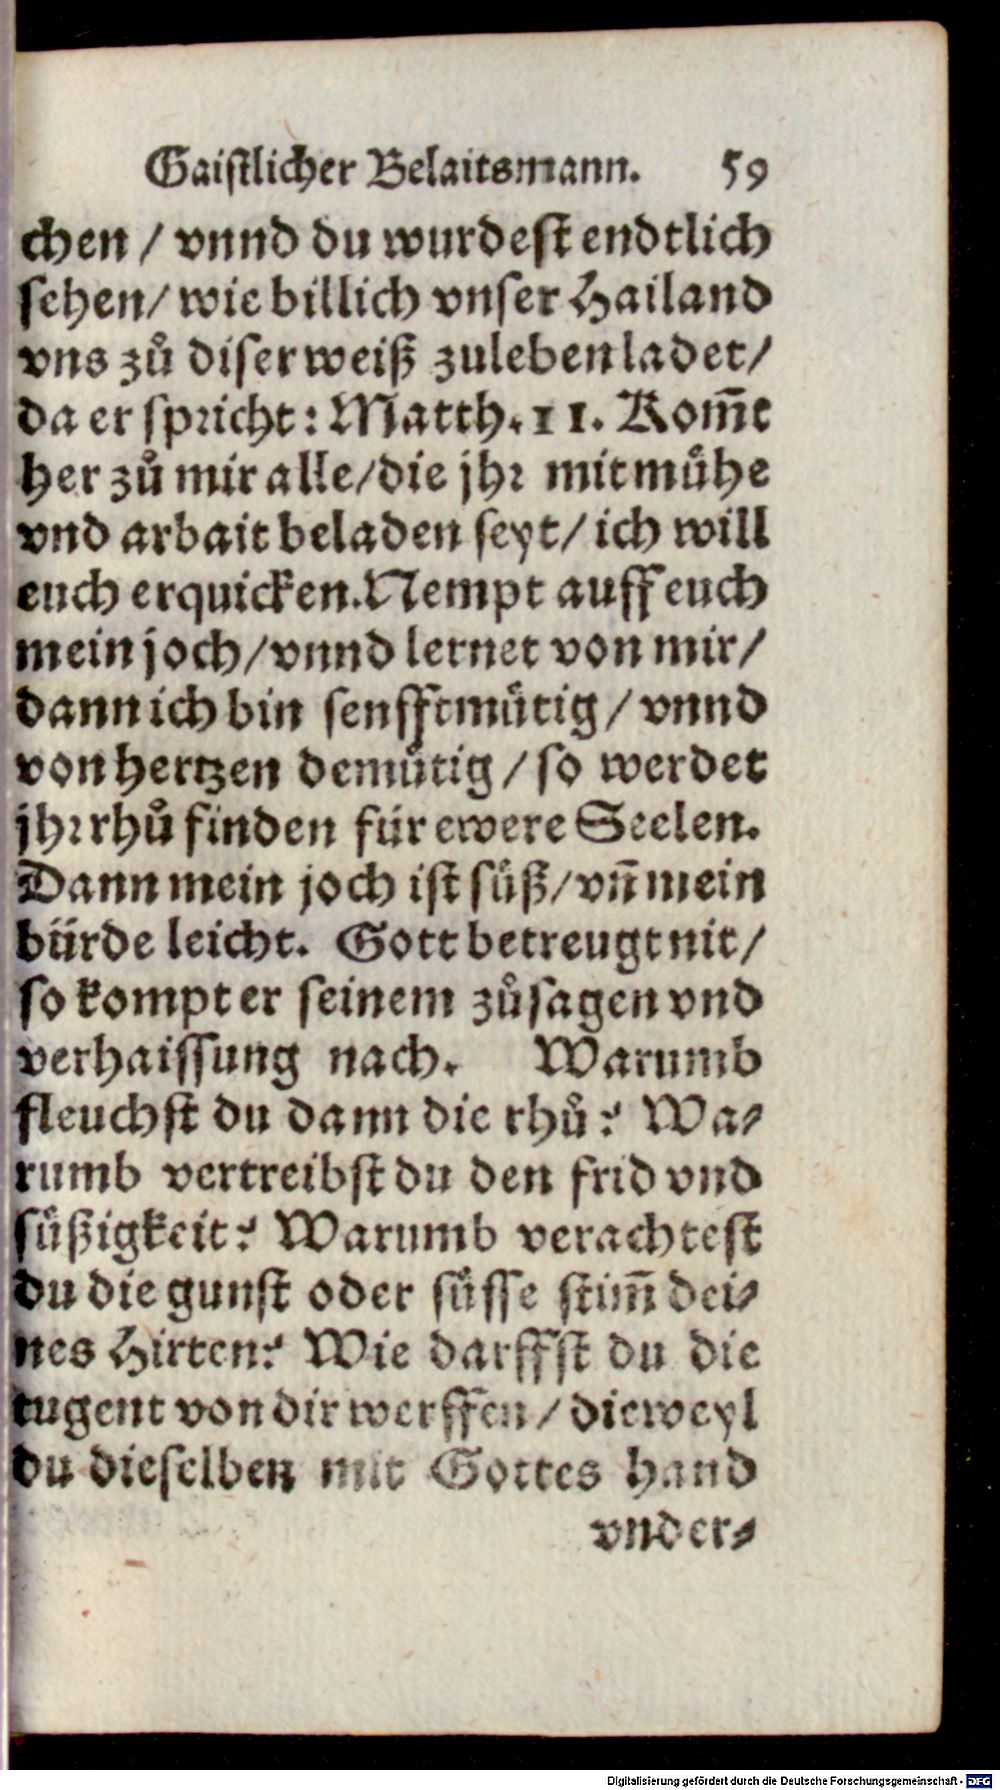 Gaistlicher Belaitsmann. 59
chen / vnnd du wurdest endtlich
sehen/ wie billich vnser Hailand
vns zů diser weiß zuleben ladet/
da er spricht: Matth. 11. Kom̃t
her zů mir alle/die jhr mit mühe
vnd arbait beladen seyt/ ich will
euch erquicken. Nempt auff euch
mein joch/vnnd lernet von mir/
dann ich bin senfftmütig / vnnd
von hertzen demütig / so werdet
jhr rhů finden für ewere Seelen.
Dann mein joch ist süß/vñ mein
bürde leicht. Gott betreugt nit/
so kompt er seinem zůsagen vnd
verhaissung nach. Warumb
fleuchst du dann die rhů? Wa-
rumb vertreibst du den frid vnd
süßigkeit? Warumb verachtest
du die gunst oder süsse stim̃ dei-
nes Hirten? Wie darffst du die
tugent von dir werffen / dieweyl
du dieselben mit Gottes hand
vnder-
Digitalisierung gefördert durch die Deutsche Forschungsgemeinschaft - DFG